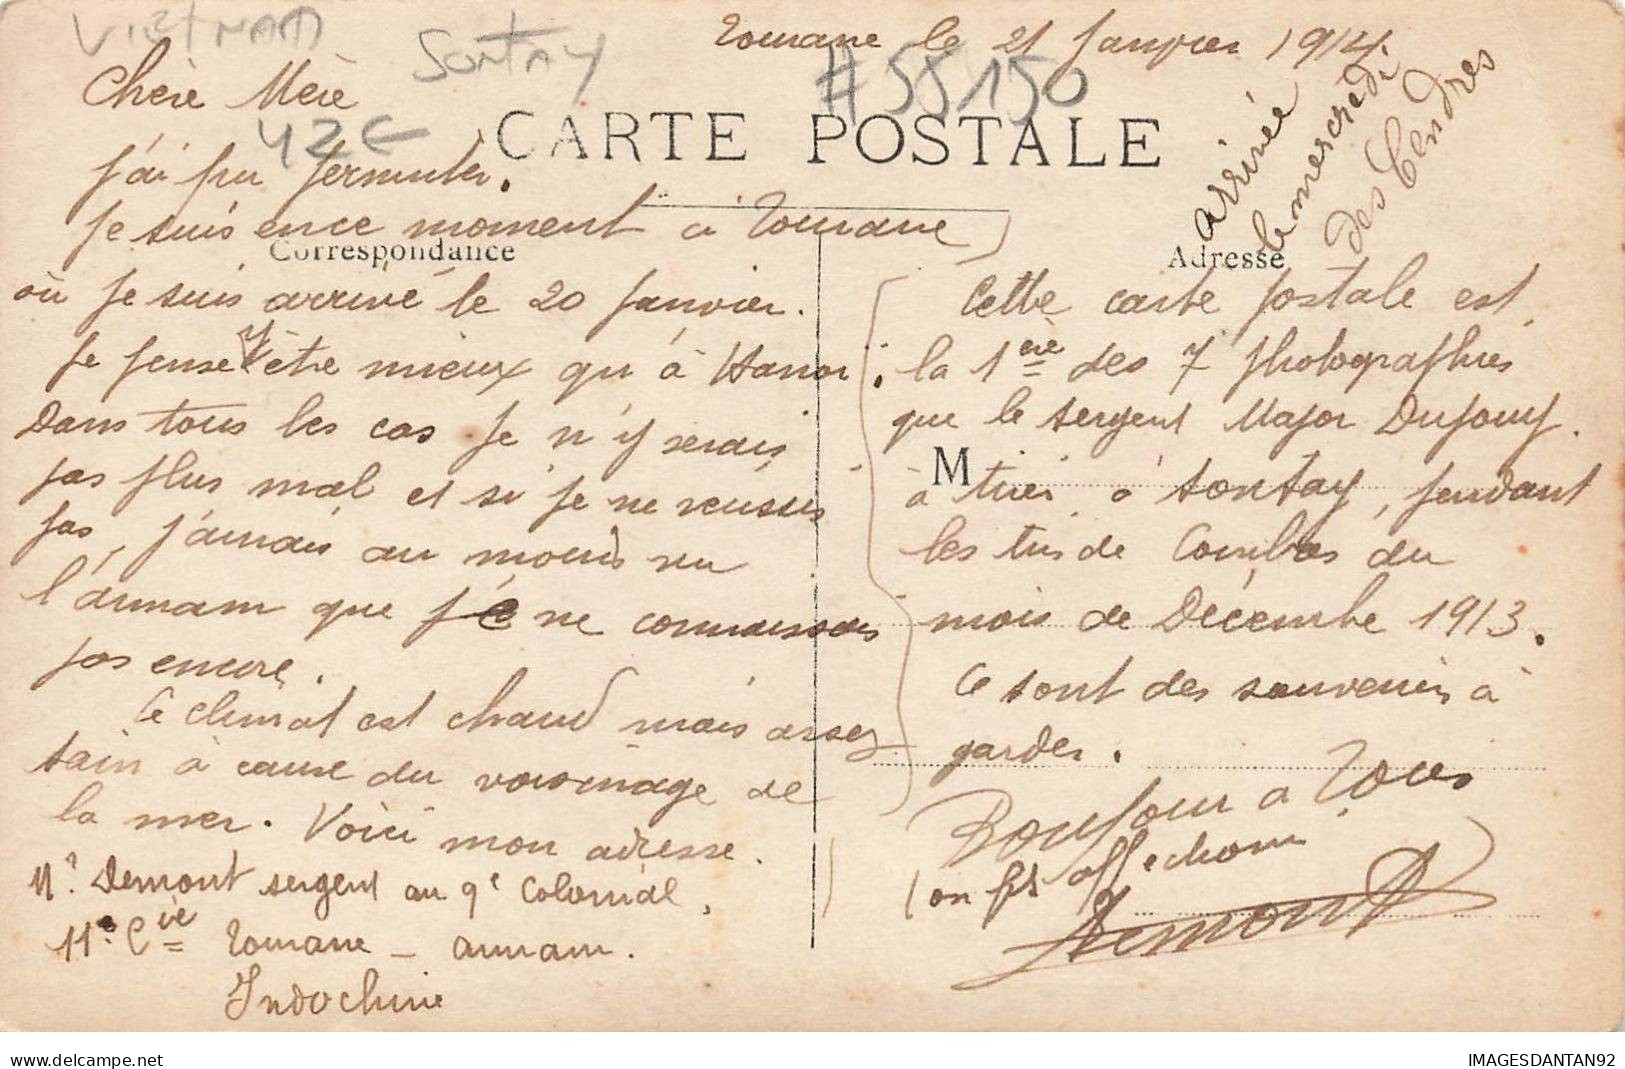 VIETNAM
SONTAY
#58150
42€
Tourane le 21 Janvier 1914.
Chère Mère
CARTE POSTALE
J'ai pu permuter.
Je suis ence moment à Tourane
Correspondance
où je suis arrivé le 20 Janvier.
Je pense y être mieux qu'à Hanoi.
Dans tous les cas je n'y serais
pas plus mal et si je ne reussis
pas, j'aurais au moins vu
l'annam que je ne connaissais
pas encore.
Le climat est chaud mais assez
sain à cause du voisinage de
la mer. Voici mon adresse.
Mr Demont sergent au 9e Colonial,
11e Cie Tourane - annam.
Indochine
arrivée
le mercredi
des Cendres
Adresse
Cette carte postale est
la 1ère des 7 photographies
que le sergent Major Dufouy.
M
à tiré à Sontay, pendant
les tirs de Combas du
mois de Décembre 1913.
Ce sont des souvenirs à
garder.
Bonjour à Tous
Ton fils affectionné
Demont
www.delcampe.net
IMAGESDANTAN92